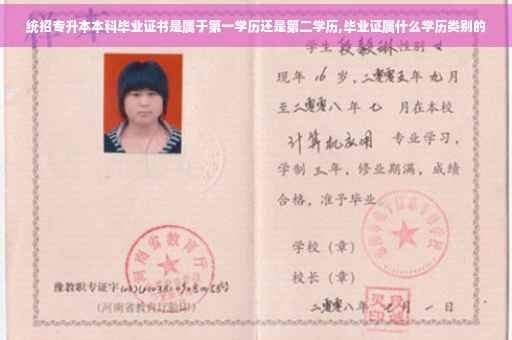 统招专升本本科毕业证书是属于第一学历还是第二学历,毕业证属什么学历类别的
学生段毅琳性别女
现年16岁,二零零五年九月
至二零零八年七月在本校
计算机应用 专业学习,
学制三年,修业期满,成绩
合格,准予毕业
学校(章)
校长(章)
二零零八年 月一日
河南省教育厅
豫教职专证字
(河南省教育厅验印)